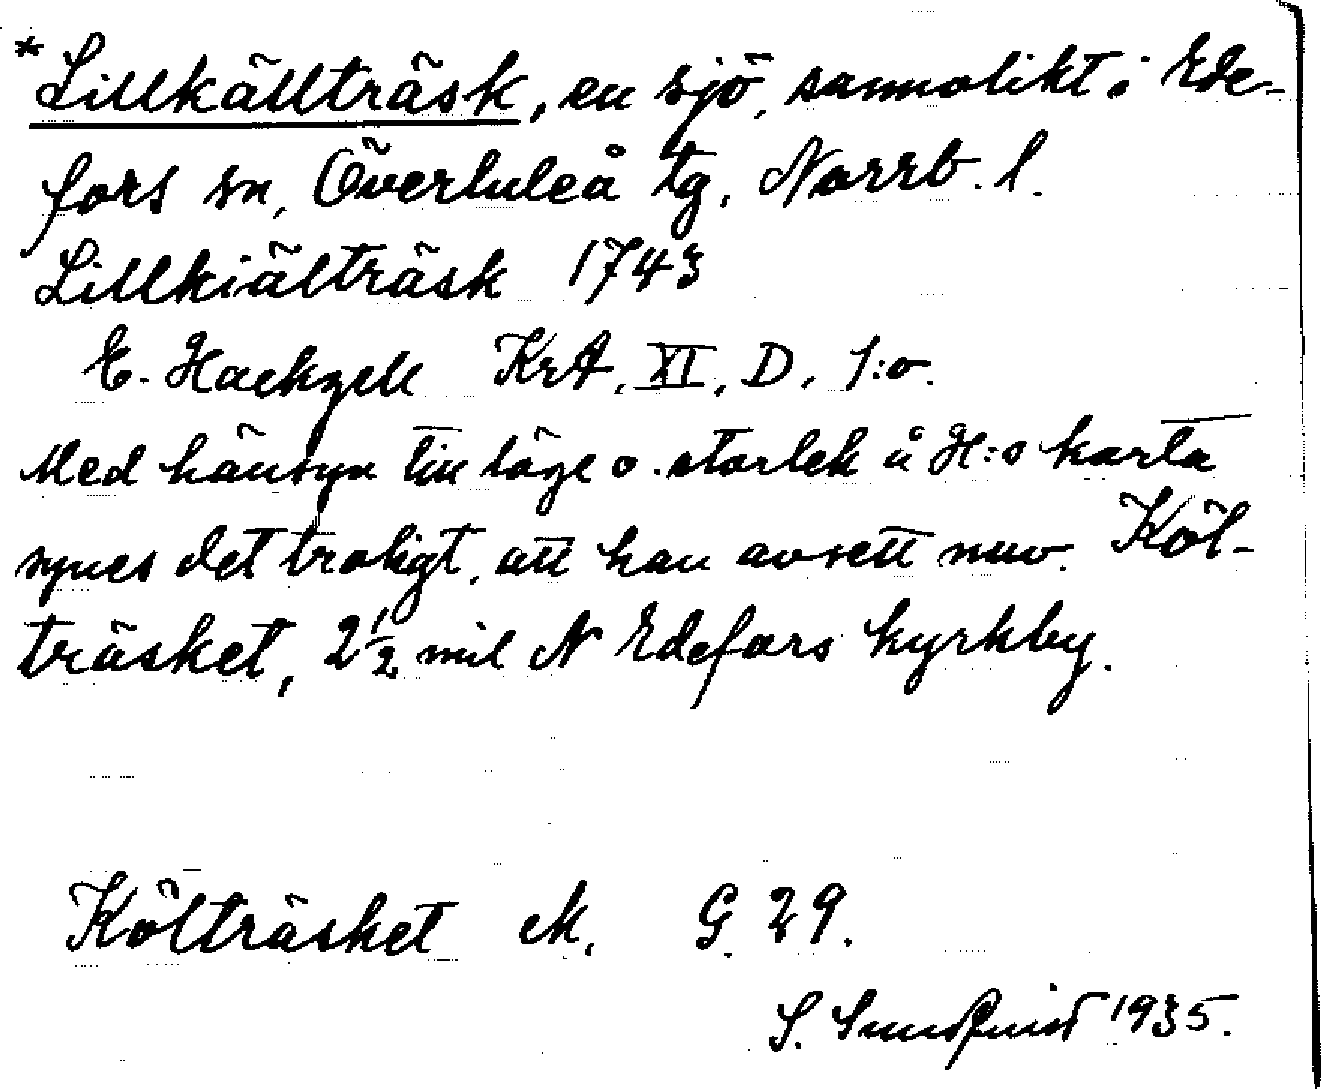 *Lillkällträsk, en sjö, sannolikt i Ede-
fors sn, Överluleå tg, Norrb. l.
Lillkiälträsk 1743
E. Hackzell KrA, XI, D, 1:o.
Med hänsyn till läge o. storlek å H:s karta
synes det troligt, att han avsett nuv. Köl-
träsket, 2½ mil N Edefors kyrkby.
Költräsket M. G 29.
S. Sundquist 1935.